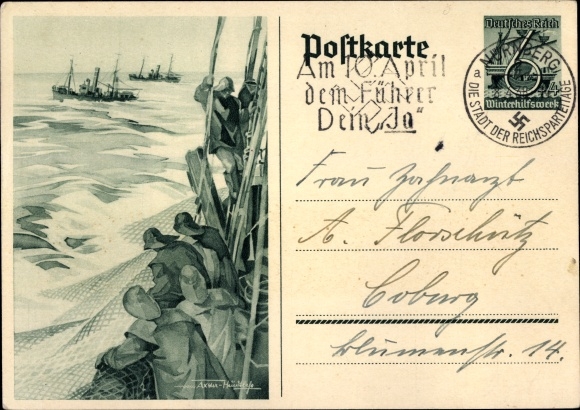 Postkarte
Am 10. April
dem Führer
Dein „Ja"
Deutsches Reich
6
Winterhilfswerk
NÜRNBERG
a
DIE STADT DER REICHSPARTEITAGE
Frau Zahnarzt
A. Florschütz
Coburg
Blumenstr. 14.